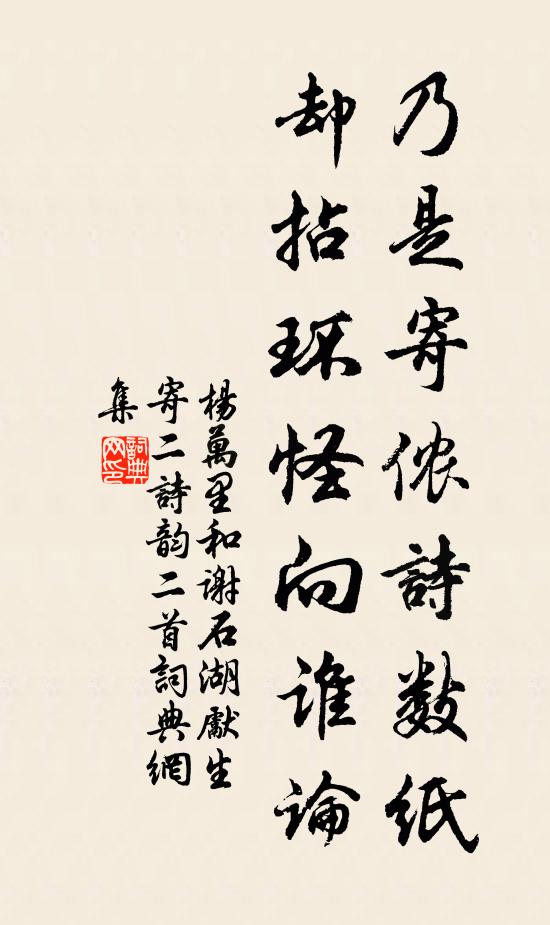 乃是寄侬詩数紙
却拈环怪向谁論
楊萬里和谢石湖獻生
寄二詩韵二首詞典網
集
詞典
网印